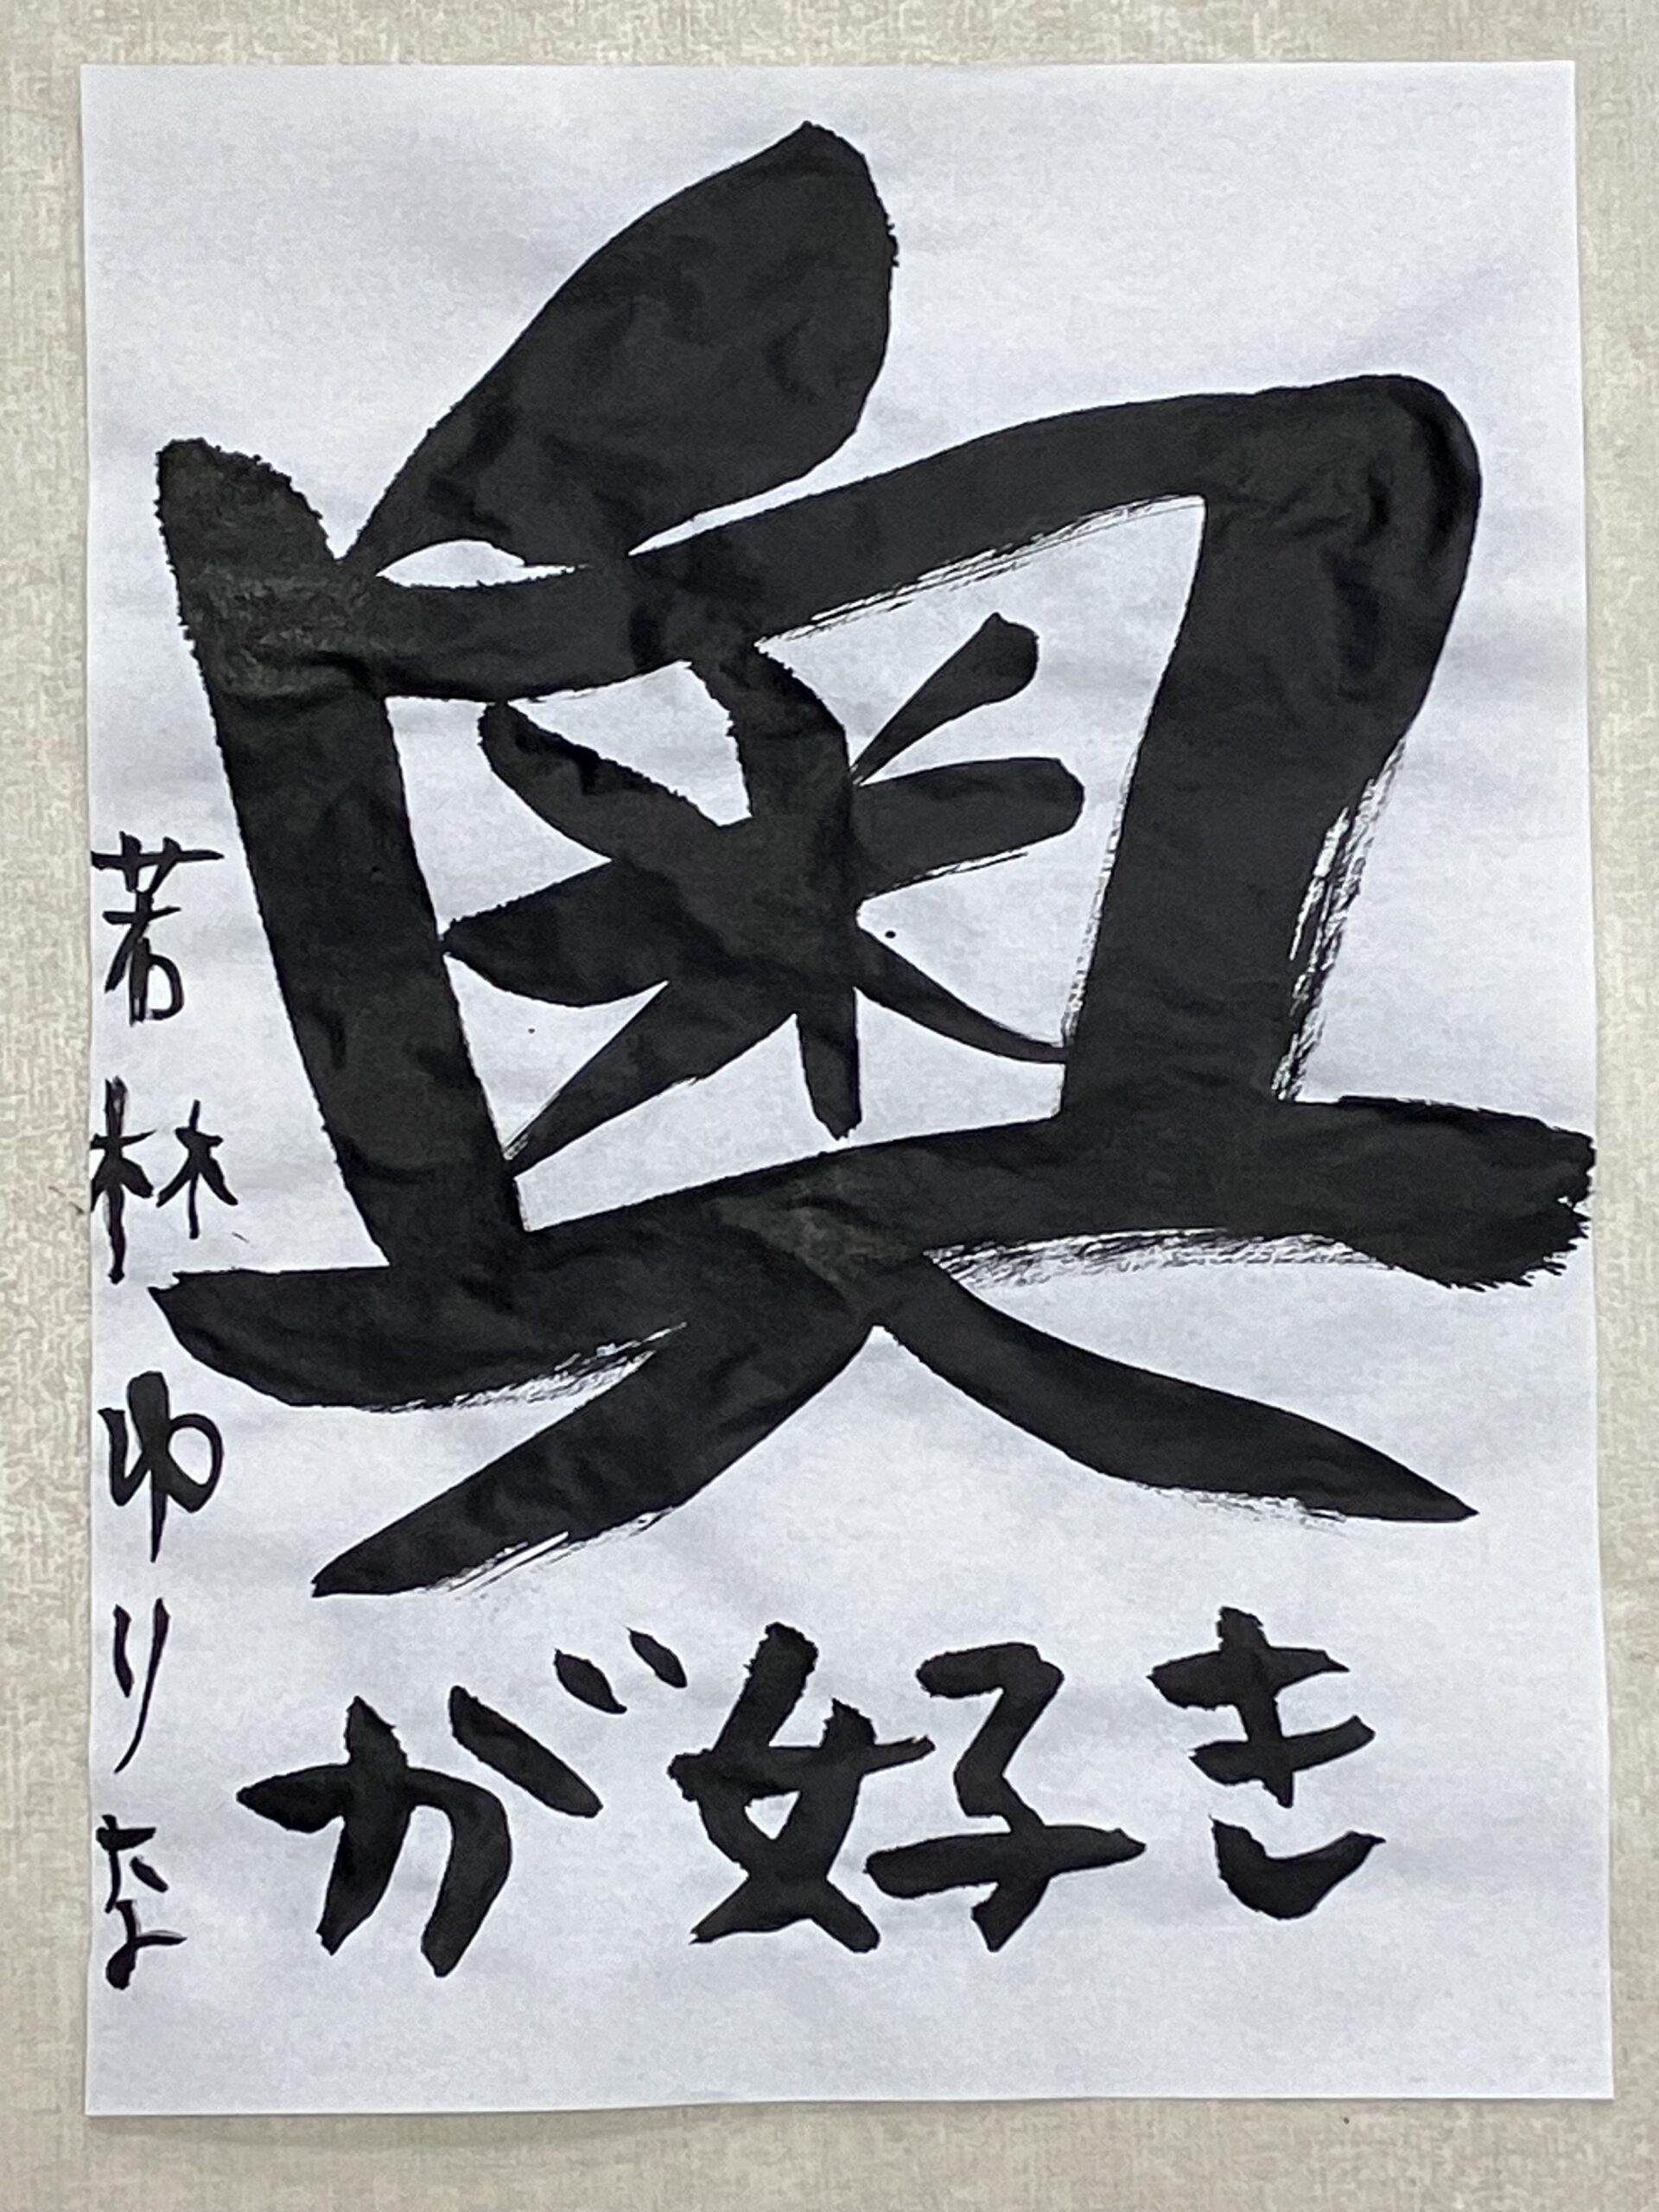 奥
が好き
若林ゆりな